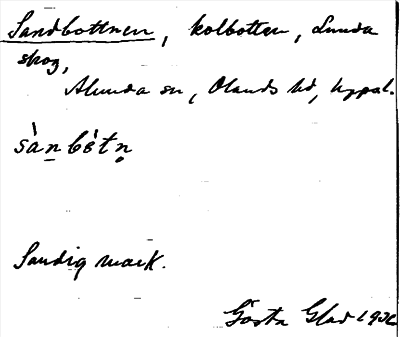 Sandbottnen, kolbotten, Lunda
skog,
Alunda sn, Olands hd, Uppsl.
sànbótn
Sandig mark.
Gösta Glad